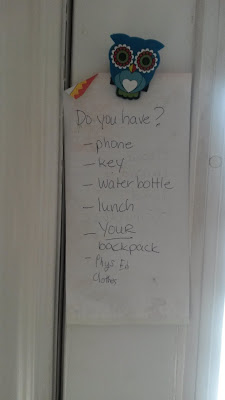 Do you have?
- phone
- key
- water bottle
- lunch
- YOUR
backpack
- Phys Ed
Clothes